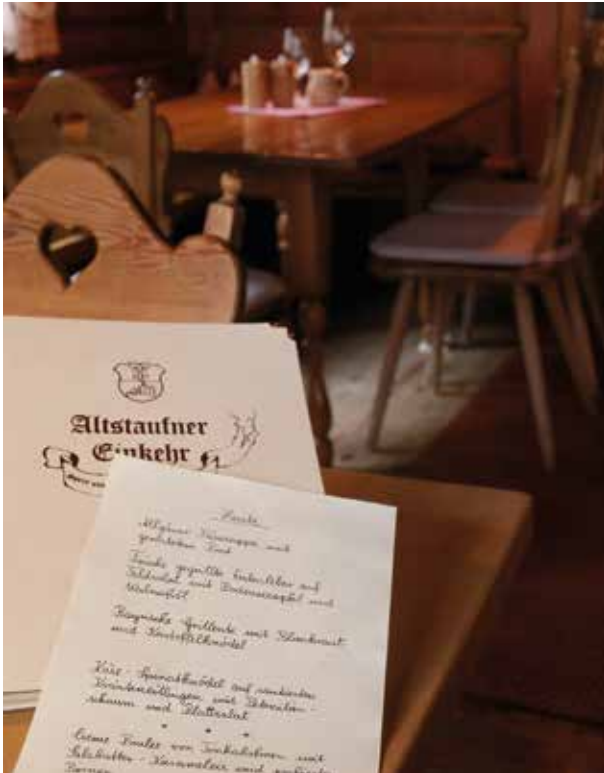 Altstaufner
Einkehr
Heute
Allgäuer Käsesuppe mit
geröstetem Brot
Frische gegrillte Entenleber auf
Feldsalat mit Bodenseeapfel und
Walnußöl
Bayrische Grillente mit Blaukraut
und Kartoffelknödel
Käse-Spinatknödel auf
Kräuterseitlingen mit
schaum und Blattsalat
* * *
Creme Brulee von Tonkabohnen mit
Salzbutter-Karamelleis und
Beeren